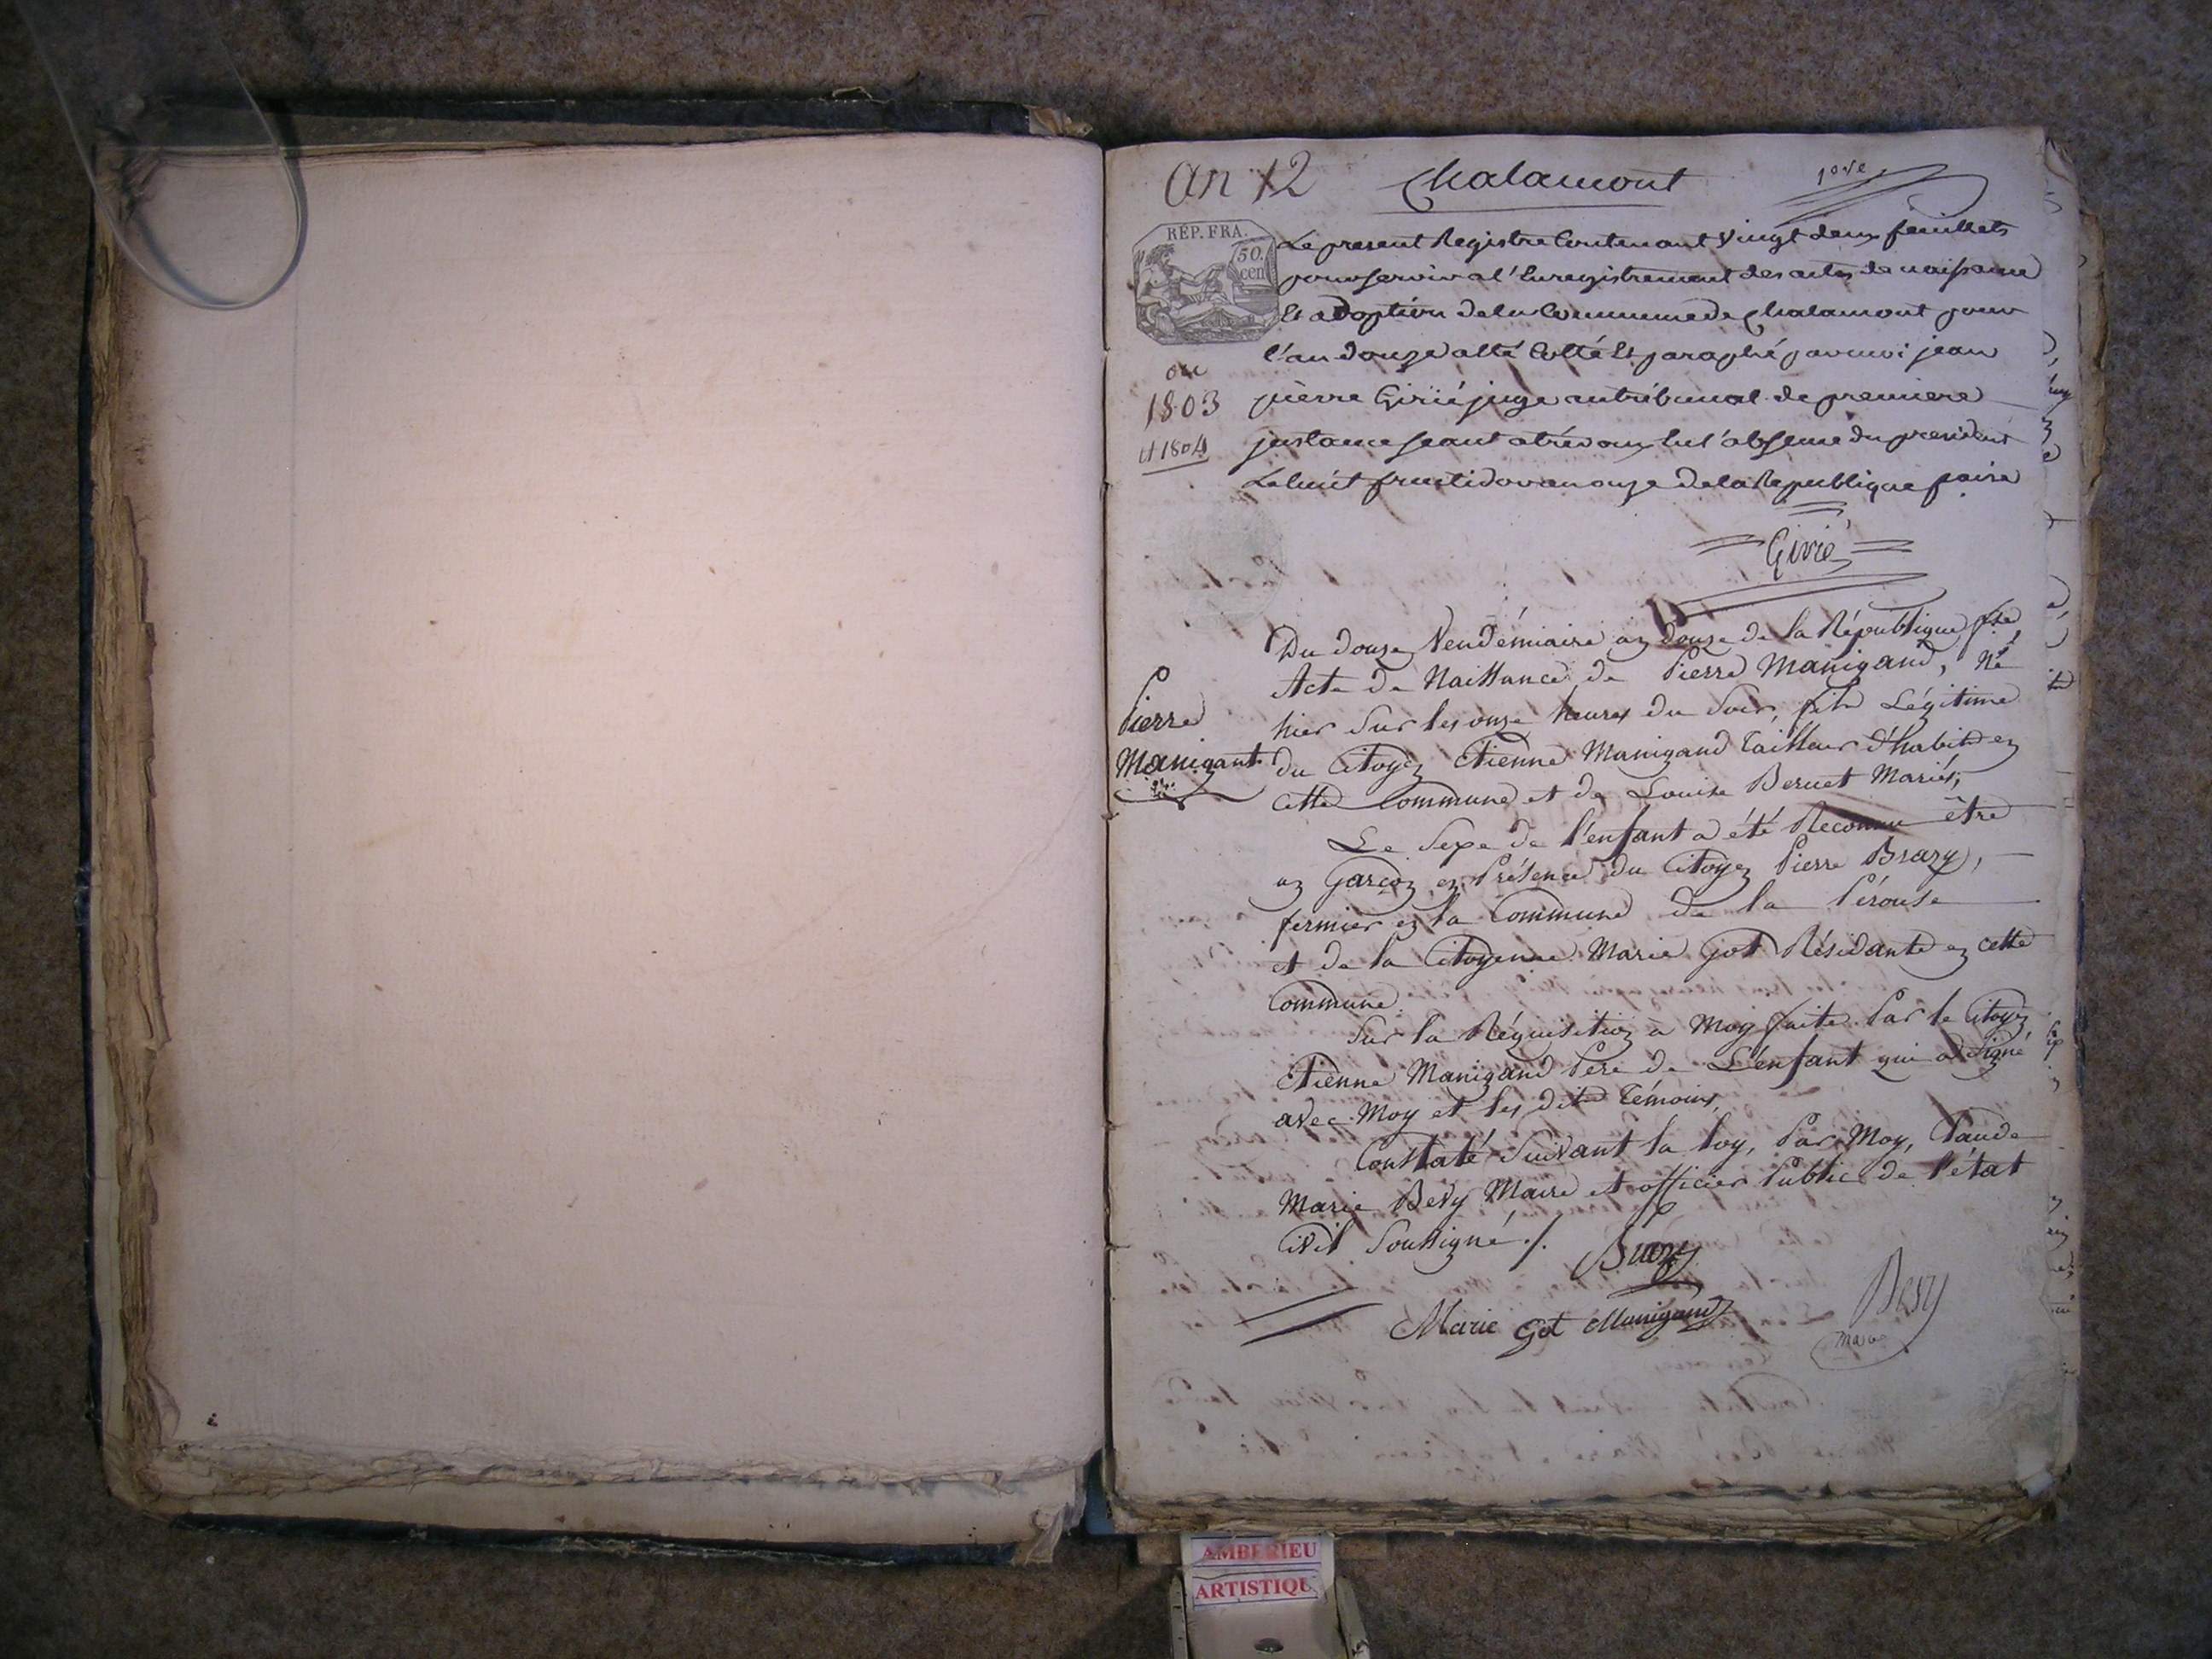 an 12
Chalamont
1ere
RÉP. FRA.
50.
cen
Le present Registre Contenant Vingt deux feuillets
pour servir a l'Enregistrement des actes de naissance
Et adoption de la Commune de Chalamont pour
l'an douze a été Cotté Et paraphé par moi jean
pierre Girié juge au tribunal de premiere
jnstance seant a trévoux lu l'absence du president
Le huit fructidor an onze de la Republique fçaise
ou
1803
et 1804
Girié
Du douze Vendémiaire an douze de la République fse
Acte de Naissance de Pierre Manigand, Né
hier Sur les onze heures du Soir, fils Légitime
du Citoyen Etienne Manigand Tailleur d'habits en
Cette Commune et de Louise Bernet Mariés;
Pierre
Manigant
Le Sexe de l'enfant a été Reconnu être
un Garçon en Présence du Citoyen Pierre Brazy,
fermier en la Commune de la Pérouse
et de la Citoyenne Marie got Résidante en cette
Commune.
Sur la Réquisition à Moy faite Par le Citoyen
Etienne Manigand Pere de L'enfant qui a Signé
avec Moy et les dits Témoins,
Constaté Suivant la loy, Par Moy, Claude
Marie Bevy Maire et officier Public de l'état
Civil Soussigné ./.
Brazy
Marie Got Manigand
Bevy
maire
AMBERIEU
ARTISTIQU